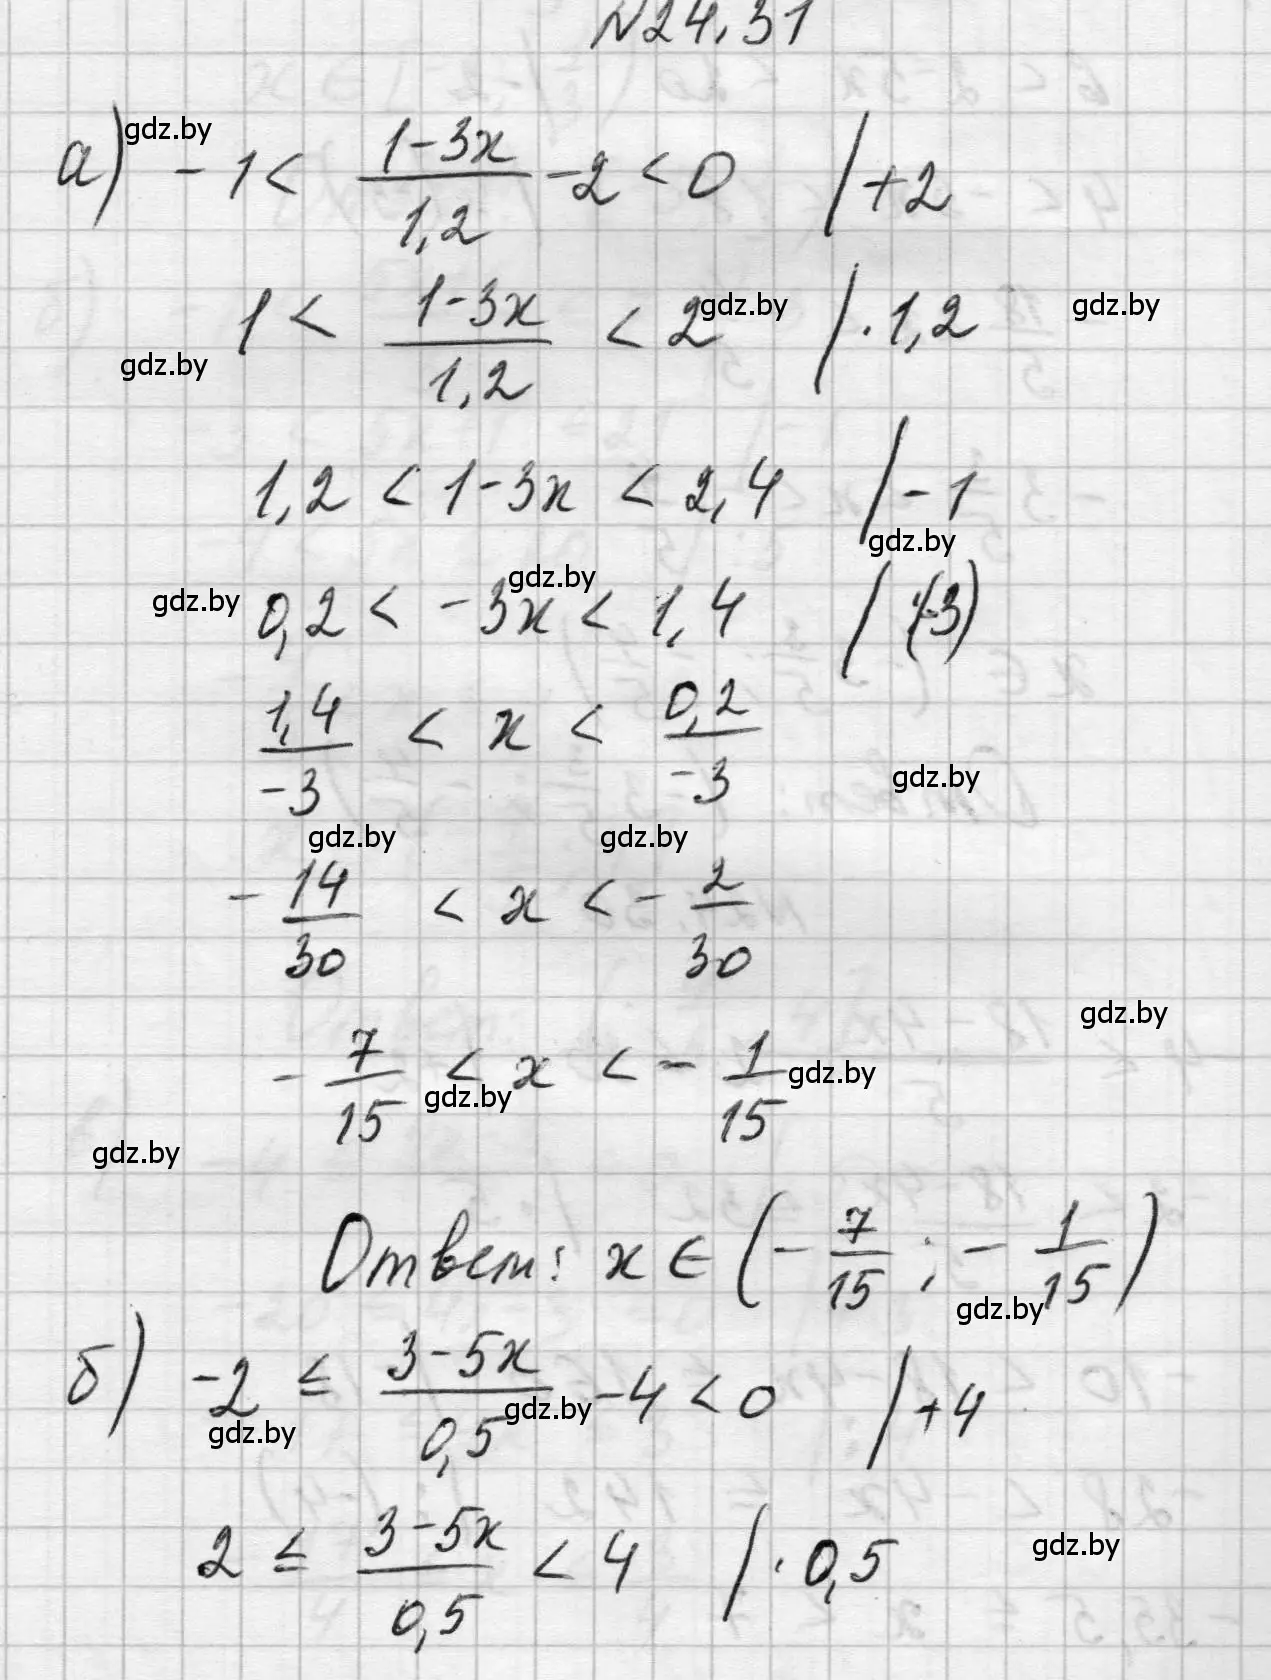 N24.31
gdz.by
а) -1 < (1-3x)/1,2 - 2 < 0 | +2
1 < (1-3x)/1,2 < 2 | · 1,2
gdz.by gdz.by
gdz.by
1,2 < 1-3x < 2,4 | -1
gdz.by
gdz.by
gdz.by
0,2 < -3x < 1,4 | :(-3)
1,4/-3 < x < 0,2/-3
gdz.by
gdz.by gdz.by
- 14/30 < x < - 2/30
gdz.by
- 7/15 < x < - 1/15
gdz.by
gdz.by
gdz.by
Ответ: x ∈ (- 7/15 ; - 1/15)
gdz.by
б) -2 ≤ (3-5x)/0,5 - 4 < 0 | +4
gdz.by
gdz.by
2 ≤ (3-5x)/0,5 < 4 | · 0,5
gdz.by